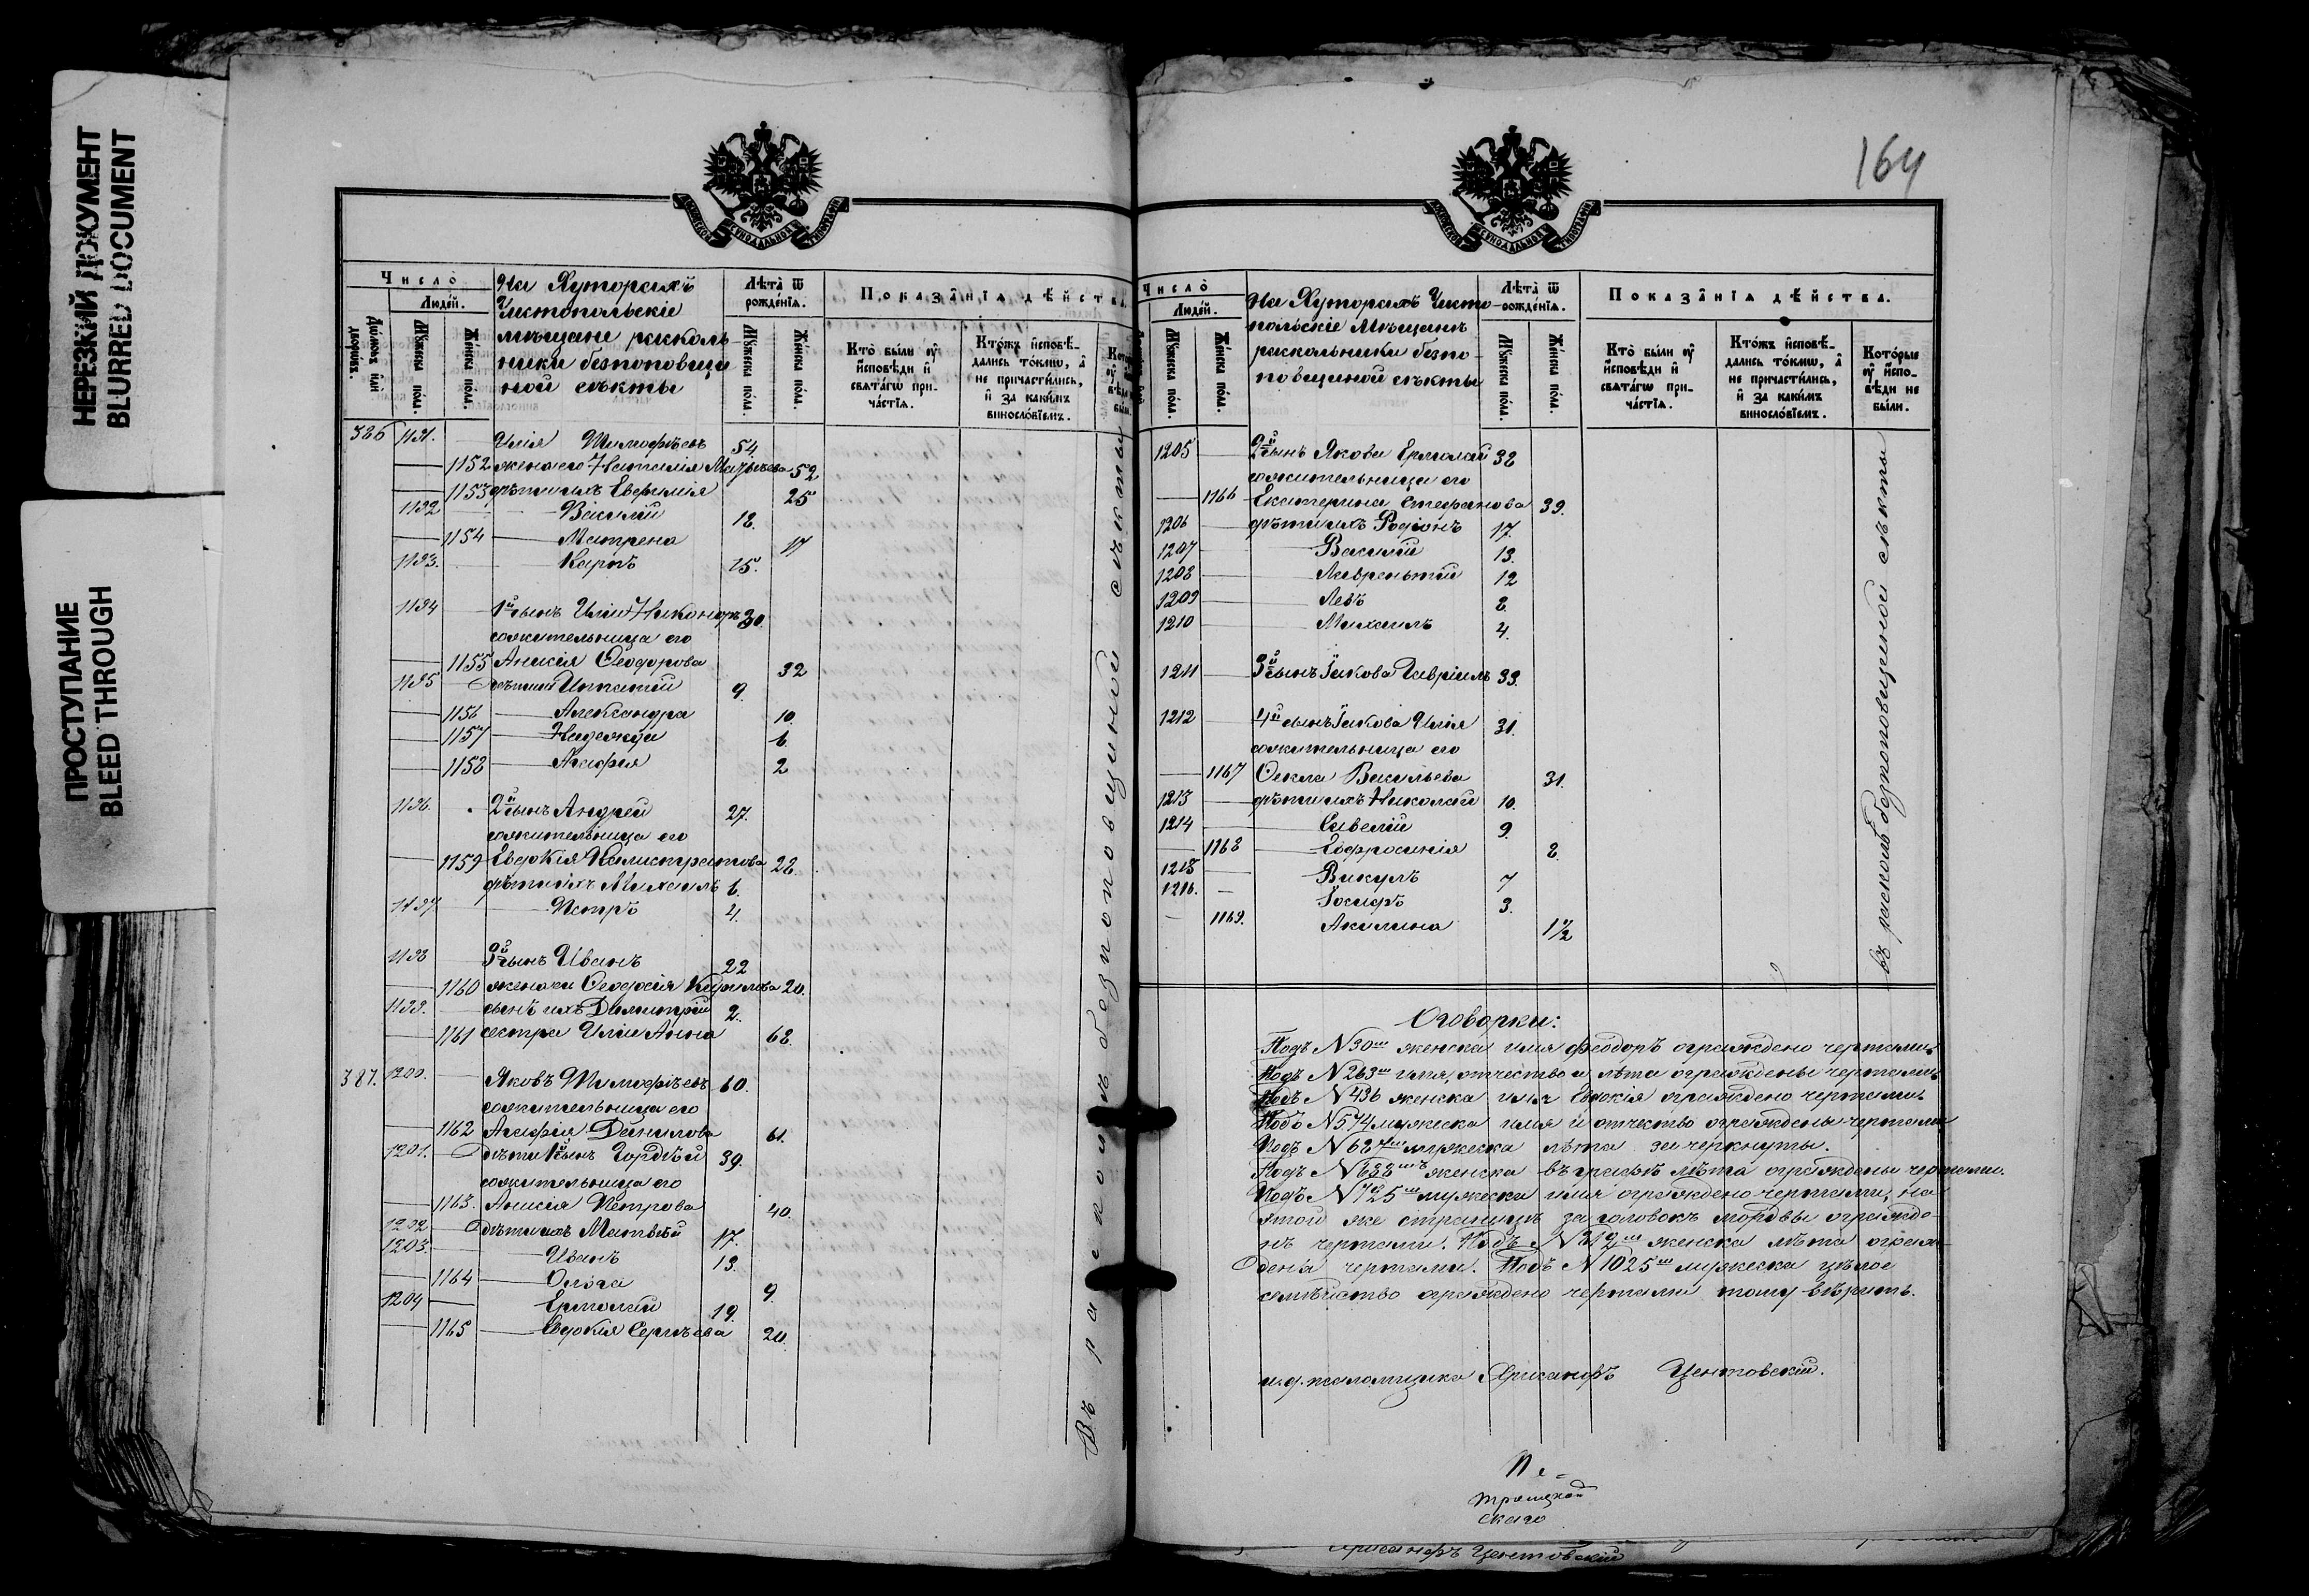 НЕРЕЗКИЙ ДОКУМЕНТ
BLURRED DOCUMENT
ПРОСТУПАНИЕ
BLEED THROUGH
Число̀
Людéй.
Дворѡвъ или дворикъ.
Мꙋжеска пóла.
Жéнска пóла.
На Хуторахъ
Чистопольскіе
мѣщане расколь-
ники безпоповщи
ной сѣкты
Лѣта̀ ѿ рождéнїѧ.
Мꙋжеска пóла.
Жéнска пóла.
Показа̑нїѧ дѣ́йства.
Кто̀ бы́ли ᲂу҆ и҆сповѣди и҆ свѧта́гѡ при-
ча́стїѧ.
Кто́жъ и҆сповѣ́-
дались то́кмѡ, а҆
не причасти́лись,
и҆ за каки́мъ
винослóвїемъ.
386 1191. Илія Тимофѣевъ 54.
1152 жена его Наталія Матѳѣева 52
1153 дѣти ихъ Евфимія 25
1192 Василій 18.
1154 Матрена 17
1193. Карпъ 15.
1194 1й сынъ Иліи Никаноръ 30.
сожительница его
1155 Анисія Ѳеодорова 32
1195 дѣти ихъ Игнатій 9.
1156 Александра 10.
1157 Надежда 6.
1158 Агафія 2
1196. 2й сынъ Андрей 27.
сожительница его
1159 Евдокія Калистратова 28.
дѣти ихъ Михаилъ 6.
1197 Петръ 4.
1198 3й сынъ Иванъ 22
1160 жена его Ѳеодосія Кирилова 20.
1199. сынъ ихъ Димитрій 2.
1161 сестра Иліи Анна 68.
387. 1200. Яковъ Тимофѣевъ 60.
сожительница его
1162 Агафія Данилова 61.
1201. дѣти 1й сынъ Гордѣй 39.
сожительница его
1163. Анисія Петрова 40.
1202 дѣти ихъ Матвѣй 17.
1203. Иванъ 13.
1164 Ольга 9.
1204 Ермолай 19.
1165 Евдокія Сергѣева 20.
Въ расколѣ безпоповщиной сѣкты
164
Число̀
Людéй.
Мꙋжеска пóла.
Жéнска пóла.
На Хуторахъ Чисто
польскіе Мѣщане
раскольники безпо-
повщиной сѣкты
Лѣта̀ ѿ рождéнїѧ.
Мꙋжеска пóла.
Жéнска пóла.
Показа̑нїѧ дѣ́йства.
Кто̀ бы́ли ᲂу҆ и҆сповѣди и҆ свѧта́гѡ при-
ча́стїѧ.
Кто́жъ и҆сповѣ́-
дались то́кмѡ, а҆
не причасти́лись,
и҆ за каки́мъ
винослóвїемъ.
Кото́рые ᲂу҆ и҆спо-
вѣди не бы́ли.
1205 2й сынъ Якова Ермолай 38
сожительница его
1166 Екатерина Стефанова 39.
1206 дѣти ихъ Родіонъ 17.
1207 Василій 13.
1208 Лаврентій 12
1209 Левъ 8.
1210 Михаилъ 4.
1211 3й сынъ Іакова Гавріилъ 33.
1212 4й сынъ Іакова Илія 31.
сожительница его
1167 Ѳекла Васильева 31.
1213 дѣти ихъ Николай 10.
1214 Савелій 9.
1168 Евфросинія 8.
1215 Викулъ 7
1216. Іосифъ 3.
1169. Акилина 1 1/2
въ расколѣ безпоповщиной сѣкты
Оговорки:
Подъ N 30м женска имя Феодоръ ограждено чертами.
Подъ N 263м имя, отчество и лѣта ограждены чертами
Подъ N 436 женска имя Евдокія ограждено чертами.
Подъ N 574 мужеска имя и отчество ограждены чертами
Подъ N 627м мужеска лѣта зачеркнуты.
Подъ N 633мъ женска въ графѣ лѣта ограждены чертами.
Подъ N 725м мужеска имя ограждено чертами, на
этой же страницѣ заголовокъ мордвы огражде-
нъ чертами. Подъ N 812м женска лѣта ограж-
дены чертами. Подъ N 1025м мужеска цѣлое
семѣйство ограждено чертами тому вѣрить.
и.д. псаломщика Хрисанфъ Центовскій.
Хрисанфъ Центовскій